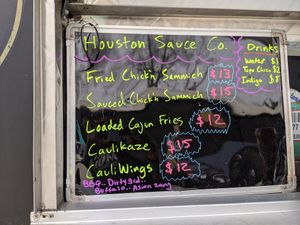 Houston Sauce Co.
Fried Chick'n Sammich $13
Sauced Chick'n Sammich $15
Loaded Cajun Fries $12
Caulikaze $15
CauliWings $12
BBQ.. Dirty Bird..
Buffalo.. Asian Zang
Drinks
Water $1
Topo Chico $2
Indigo $5